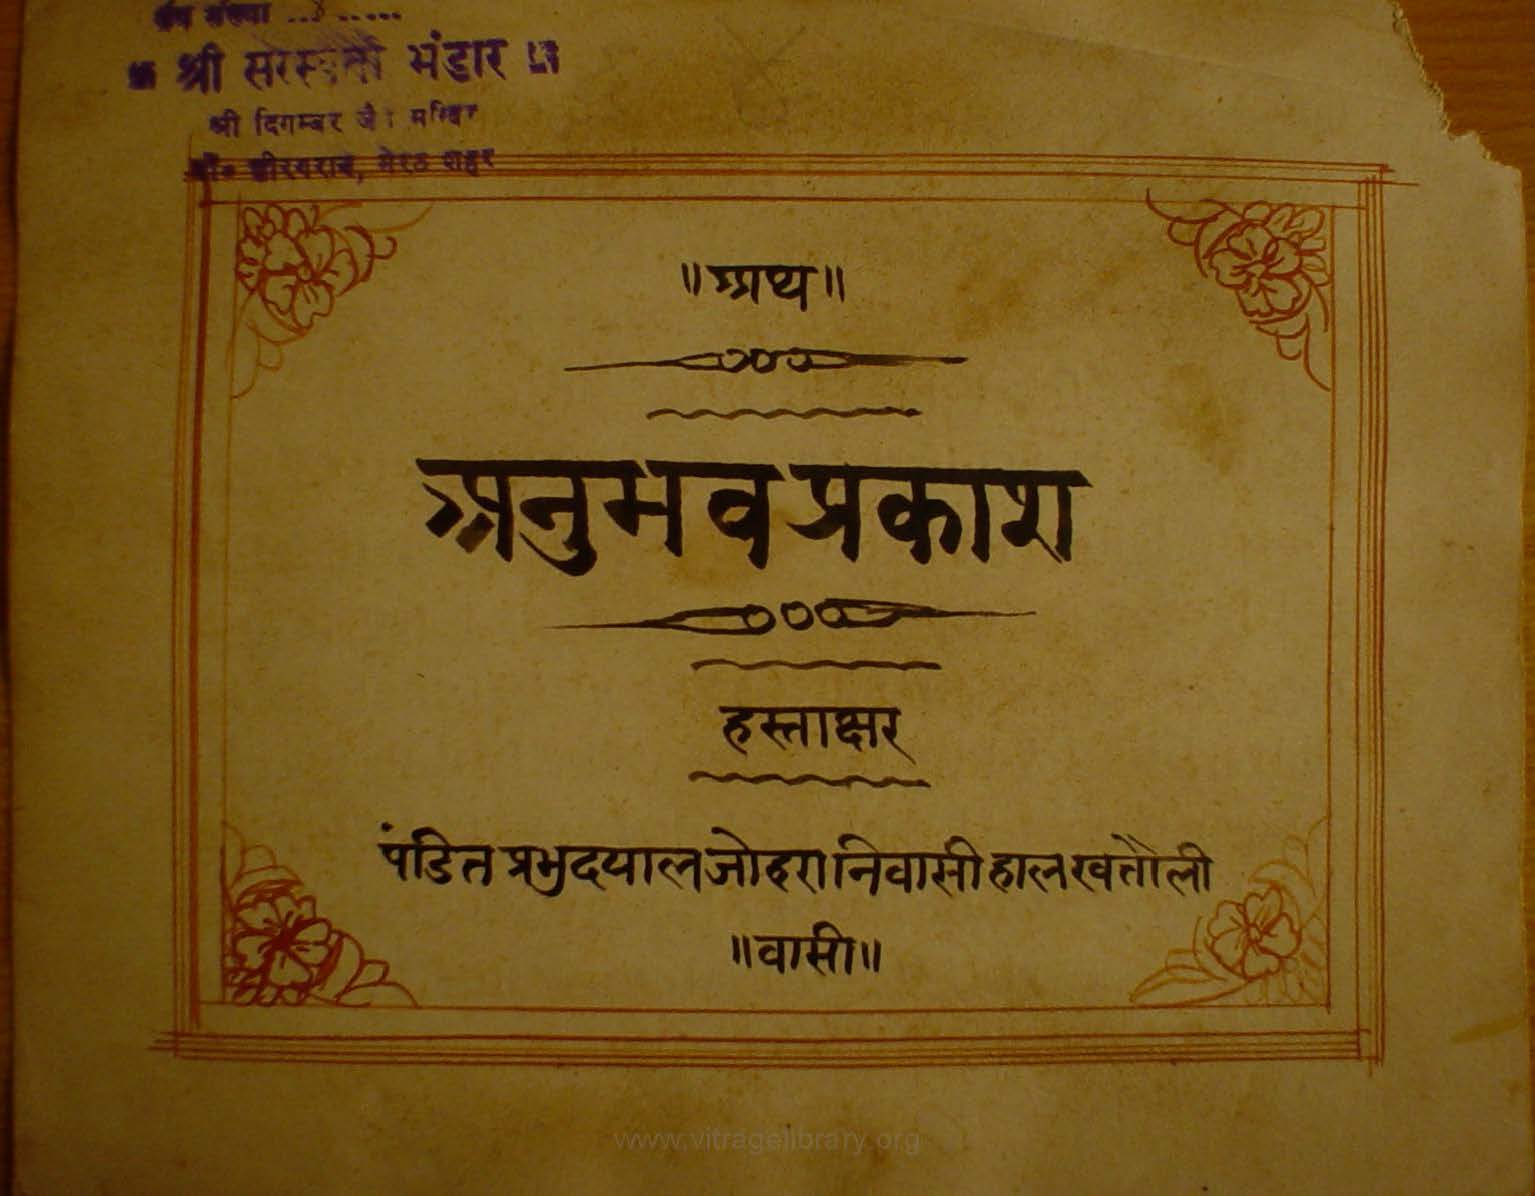 ग्रंथ संख्या ... .....
卐 श्री सरस्वती भंडार 卐
श्री दिगम्बर जैन मन्दिर
मेरठ शहर
॥अथ॥
अनुभवप्रकाश
हस्ताक्षर
पंडित प्रभुदयाल जोहरा निवासी हाल खतौली
॥वासी॥
www.vitragelibrary.org